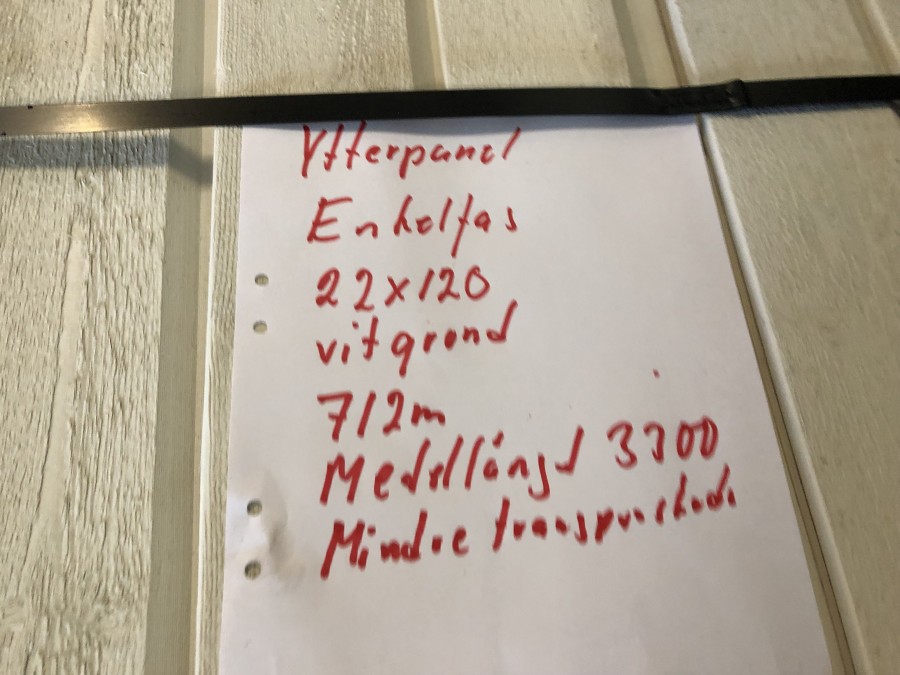 Ytterpanel
Enkelfas
22x120
vitgrund
712m
Medellängd 3300
Mindre transportskada